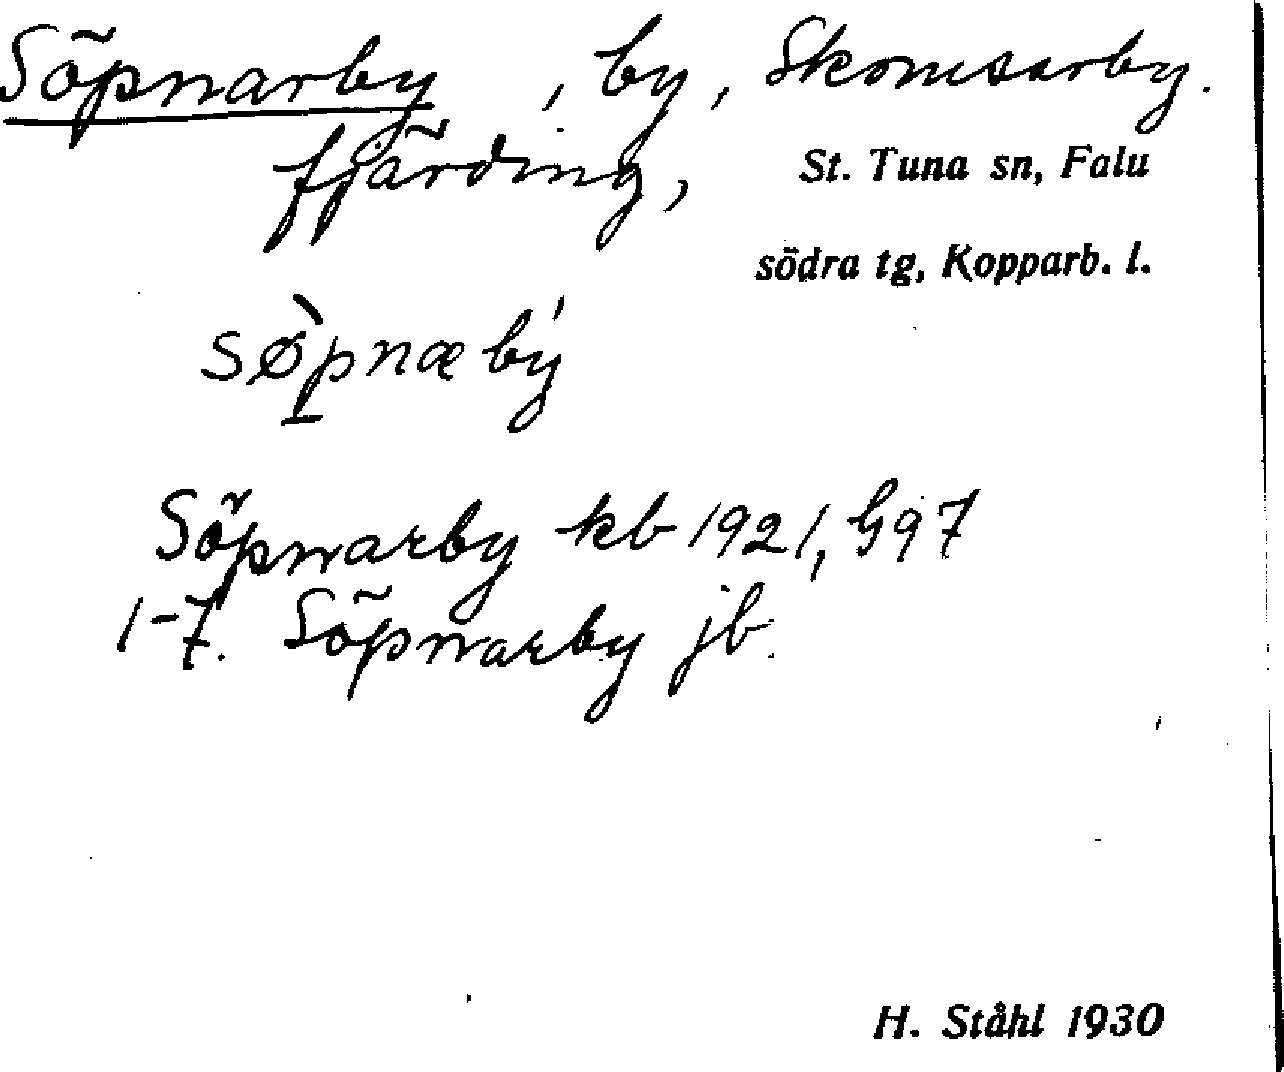 Söpnarby, by, Skomsarby.
fjärding, St. Tuna sn, Falu
södra tg, Kopparb. l.
sø̀pnæbý
Söpnarby kb 1921, G97
1-7. Söpnarby jb.
H. Ståhl 1930